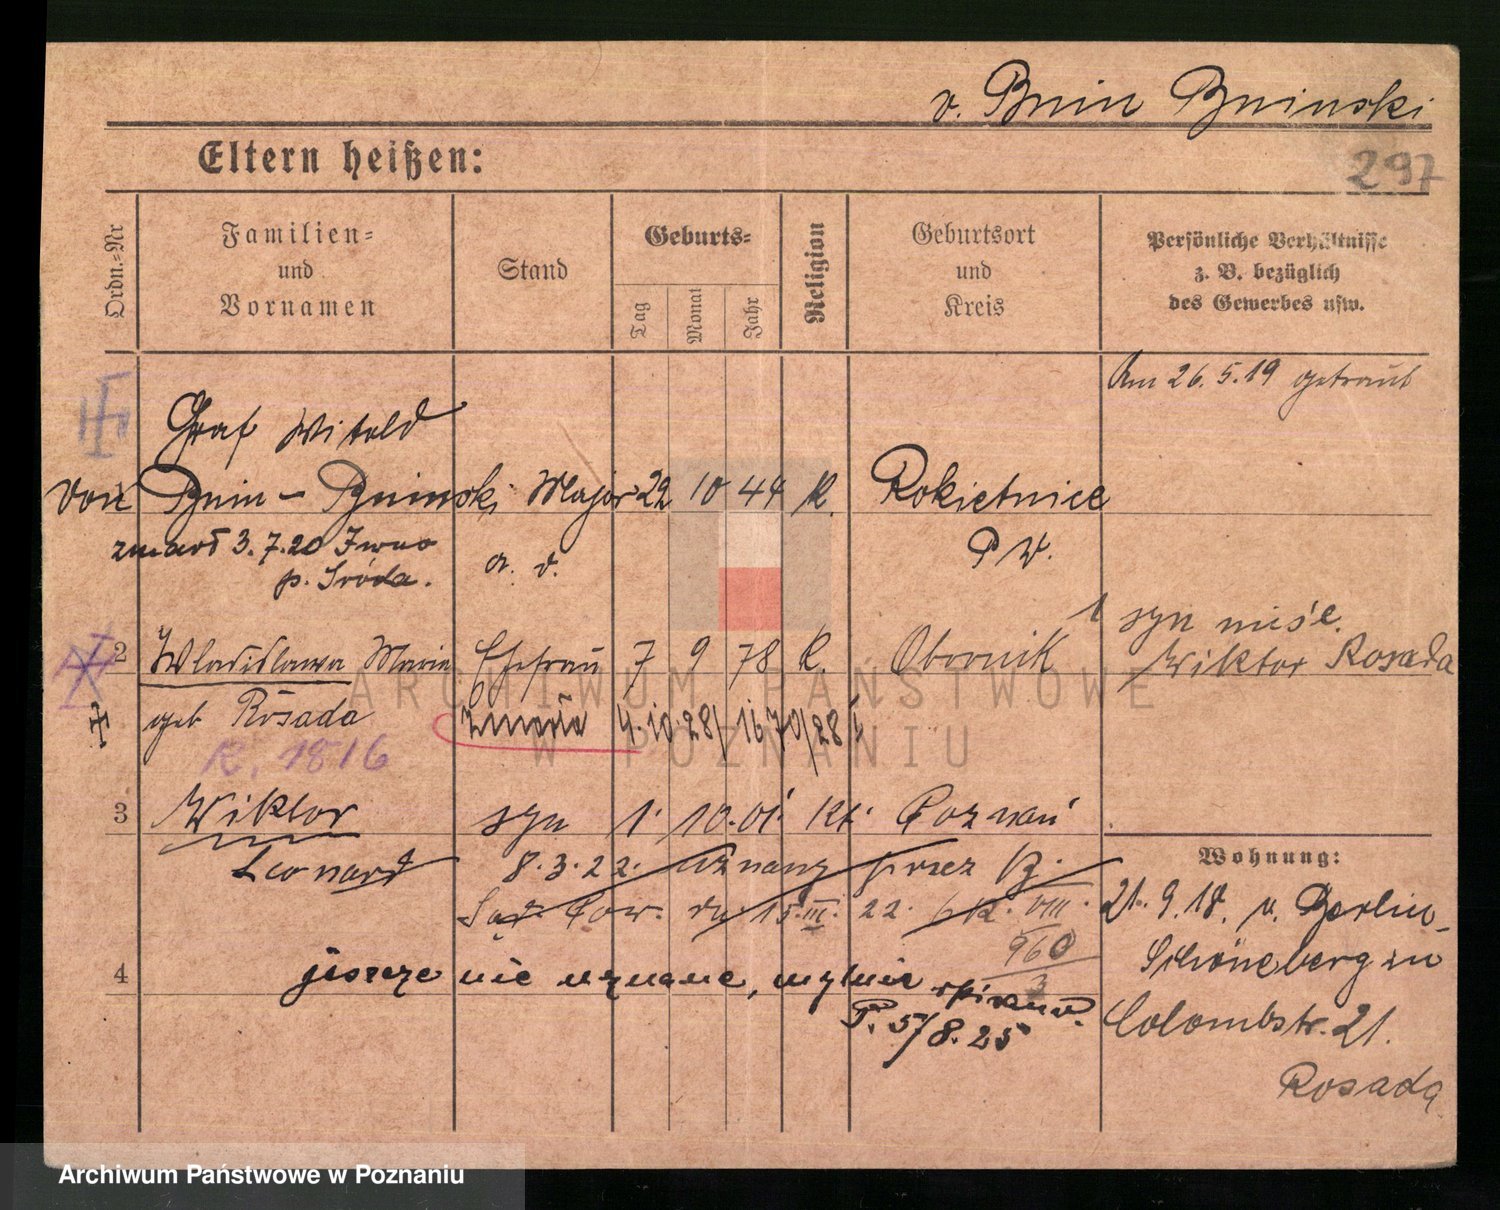 v. Bnin Bninski
Eltern heißen:
297
Ordn.=Nr
Familien=
und
Vornamen
Stand
Geburts=
Tag
Monat
Jahr
Religion
Geburtsort
und
Kreis
Persönliche Verhältnisse
z. B. bezüglich
des Gewerbes usw.
Am 26.5.19 getraut
Graf Witold
von Bnin - Bninski Major 22 10 44 K. Rokietnice
zmarł 3.7.20 Iwno a. D. P W.
p. Środa.
1 syn nieśl.
2 Wladislawa Maria Ehefrau 7 9 78 K. Obornik Wiktor Rosada
geb Rosada zmarła 4.10.28/1670/28
K. 1816
3 Wiktor syn 1. 10.01 Kt. Poznań
Leonard 8.3.22. uznany przez
Sąd. Pow. 15.III.22. 6 K. VIII.
960
3
4 jeszcze nie uznane, mylnie
P. 5/8.25
Wohnung:
21.9.18. v. Berlin
Schöneberg zu
Colombstr. 21.
Rosada
ARCHIWUM PAŃSTWOWE
W POZNANIU
Archiwum Państwowe w Poznaniu